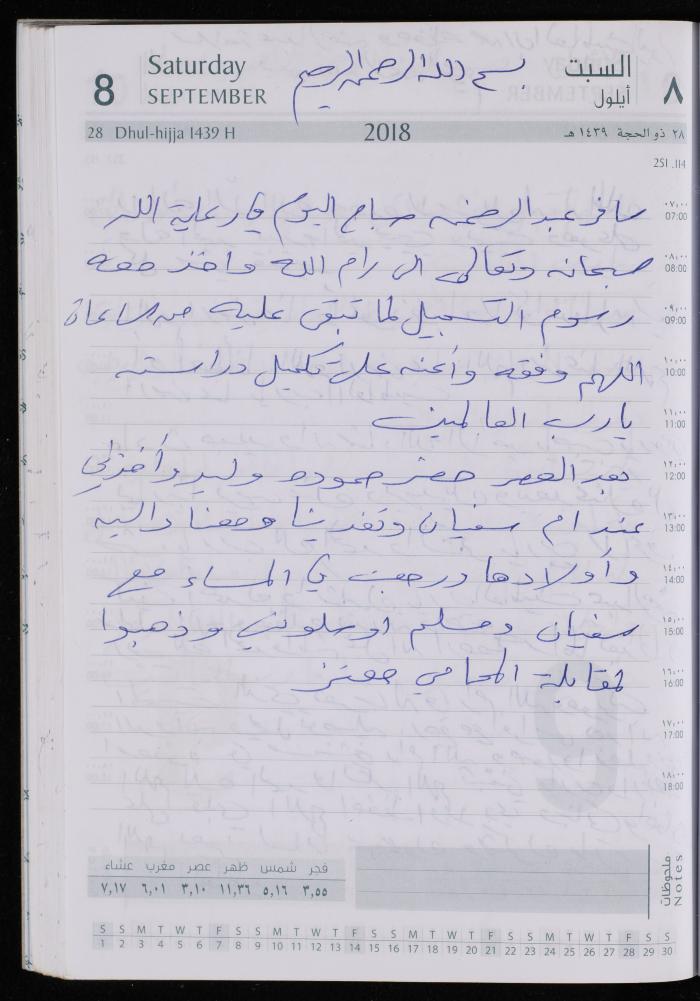 8 Saturday SEPTEMBER
السبت أيلول ٨
بسم الله الرحمن الرحيم
28 Dhul-hijja 1439 H 2018 ٢٨ ذو الحجة ١٤٣٩ هـ
251 .114
٠٧:٠٠ 07:00
سافر عبد الرحمن صباح اليوم في رعاية الله
٠٨:٠٠ 08:00
سبحانه وتعالى الى رام الله واخذ معه
٠٩:٠٠ 09:00
رسوم التسجيل لما تبقى عليه من ساعات
١٠:٠٠ 10:00
اللهم وفقه وأعنه على تكميل دراسته
١١:٠٠ 11:00
يا رب العالمين
١٢:٠٠ 12:00
بعد العصر حضر حموده وليد وأخذني
١٣:٠٠ 13:00
عند ام سفيان وتغدينا ومعنا داليه
١٤:٠٠ 14:00
وأولادها ورجعت في المساء مع
١٥:٠٠ 15:00
سفيان ومسلم اوصلوني وذهبوا
١٦:٠٠ 16:00
لمقابلة المحامي معتز
١٧:٠٠ 17:00
١٨:٠٠ 18:00
ملحوظات Notes
فجر شمس ظهر عصر مغرب عشاء
٣,٥٥ ٥,١٦ ١١,٣٦ ٣,١٠ ٦,٠١ ٧,١٧
S S M T W T F S S M T W T F S S M T W T F S S M T W T F S S
1 2 3 4 5 6 7 8 9 10 11 12 13 14 15 16 17 18 19 20 21 22 23 24 25 26 27 28 29 30